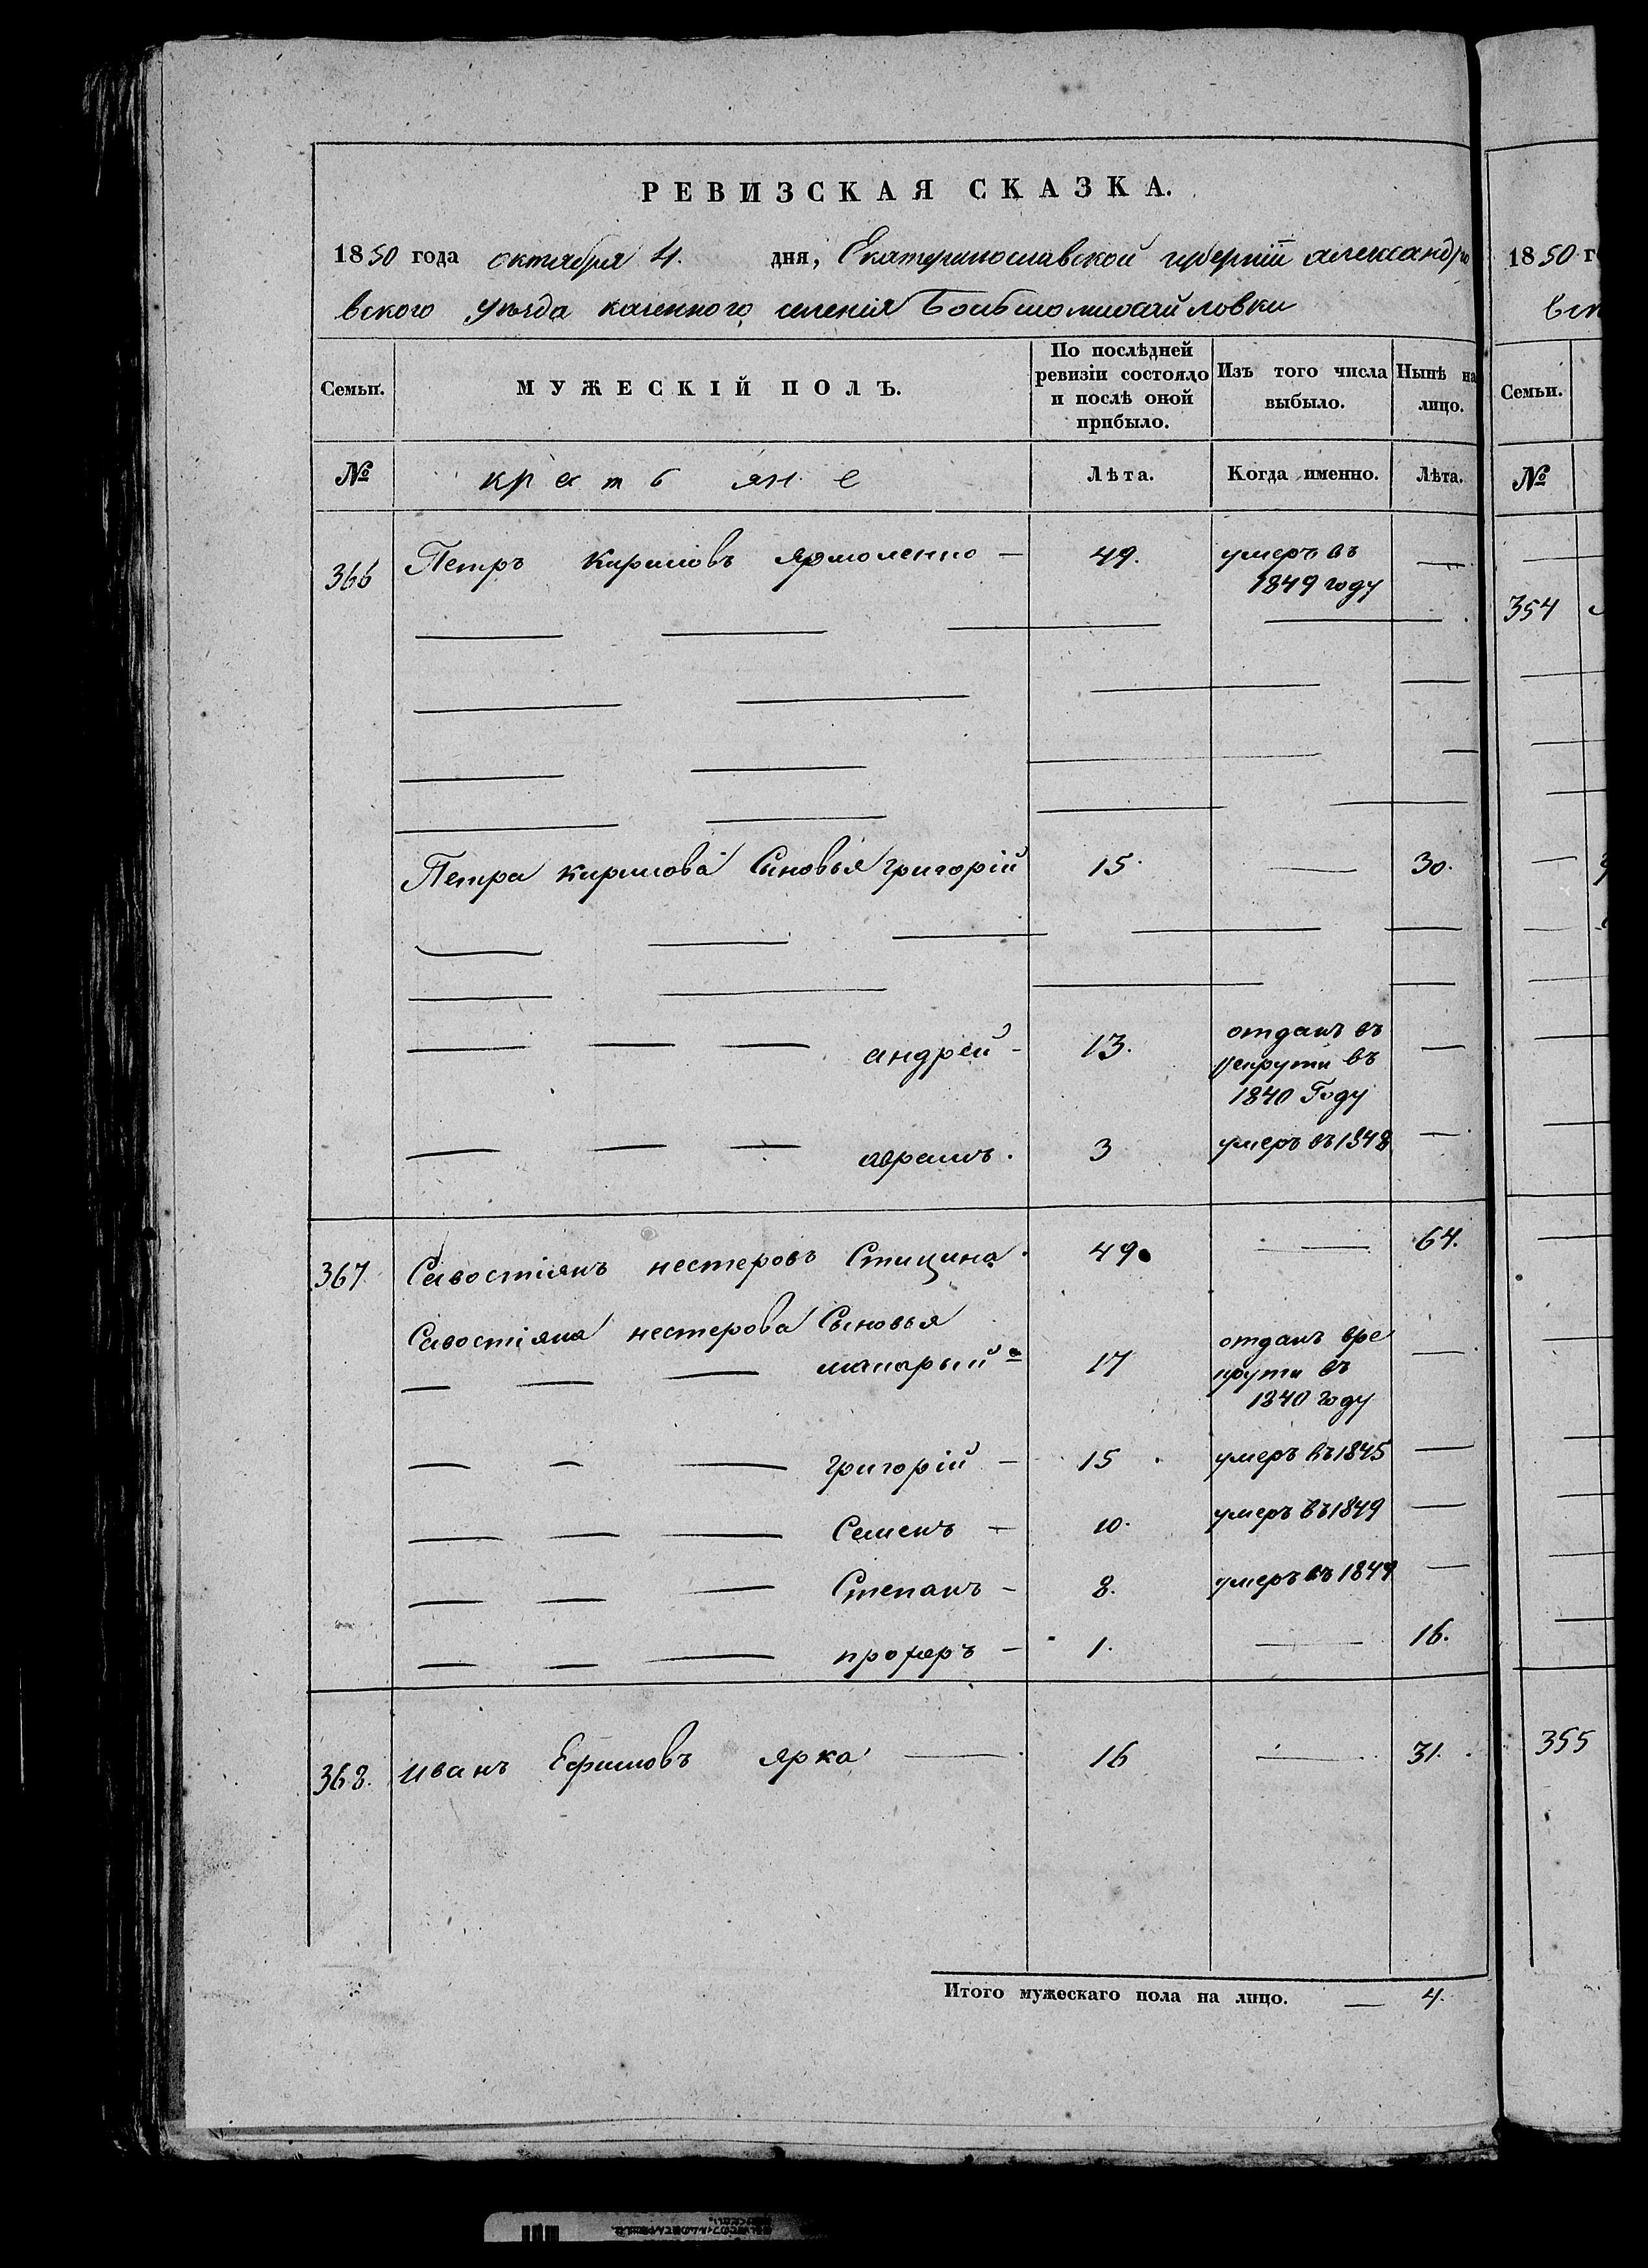 РЕВИЗСКАЯ СКАЗКА.
1850 года октября 4. дня, Екатеринославской губерніи александро
вского уѣзда казенного селенія Большомихайловки
Семьи. МУЖЕСКІЙ ПОЛЪ. По послѣдней ревизіи состояло и послѣ оной прибыло. Изъ того числа выбыло. Нынѣ на лицо.
№ крестьяне Лѣта. Когда именно. Лѣта.
366 Петръ Кириловъ Ярмоленко — 49. умеръ въ —
1849 году
Петра кирилова Сыновья григорій 15. — 30.
андрей - 13. отданъ въ —
рекруты въ
1840 Году
аврамъ. 3 умеръ въ 1848 —
367 Савостіянъ нестеровъ Спицина. 49. — 64.
Савостіяна нестерова Сыновья
макарый 17 отданъ вре —
круты въ
1840 году
григорій — 15 умеръ въ 1845 —
Семенъ — 10. умеръ въ 1849 —
Степанъ — 8. умеръ въ 1849 —
прохоръ — 1. — 16.
368. иванъ Ефимовъ ярка — 16 — 31.
Итого мужескаго пола на лицо. — 4.
1850 г
Семьи.
№
354
355